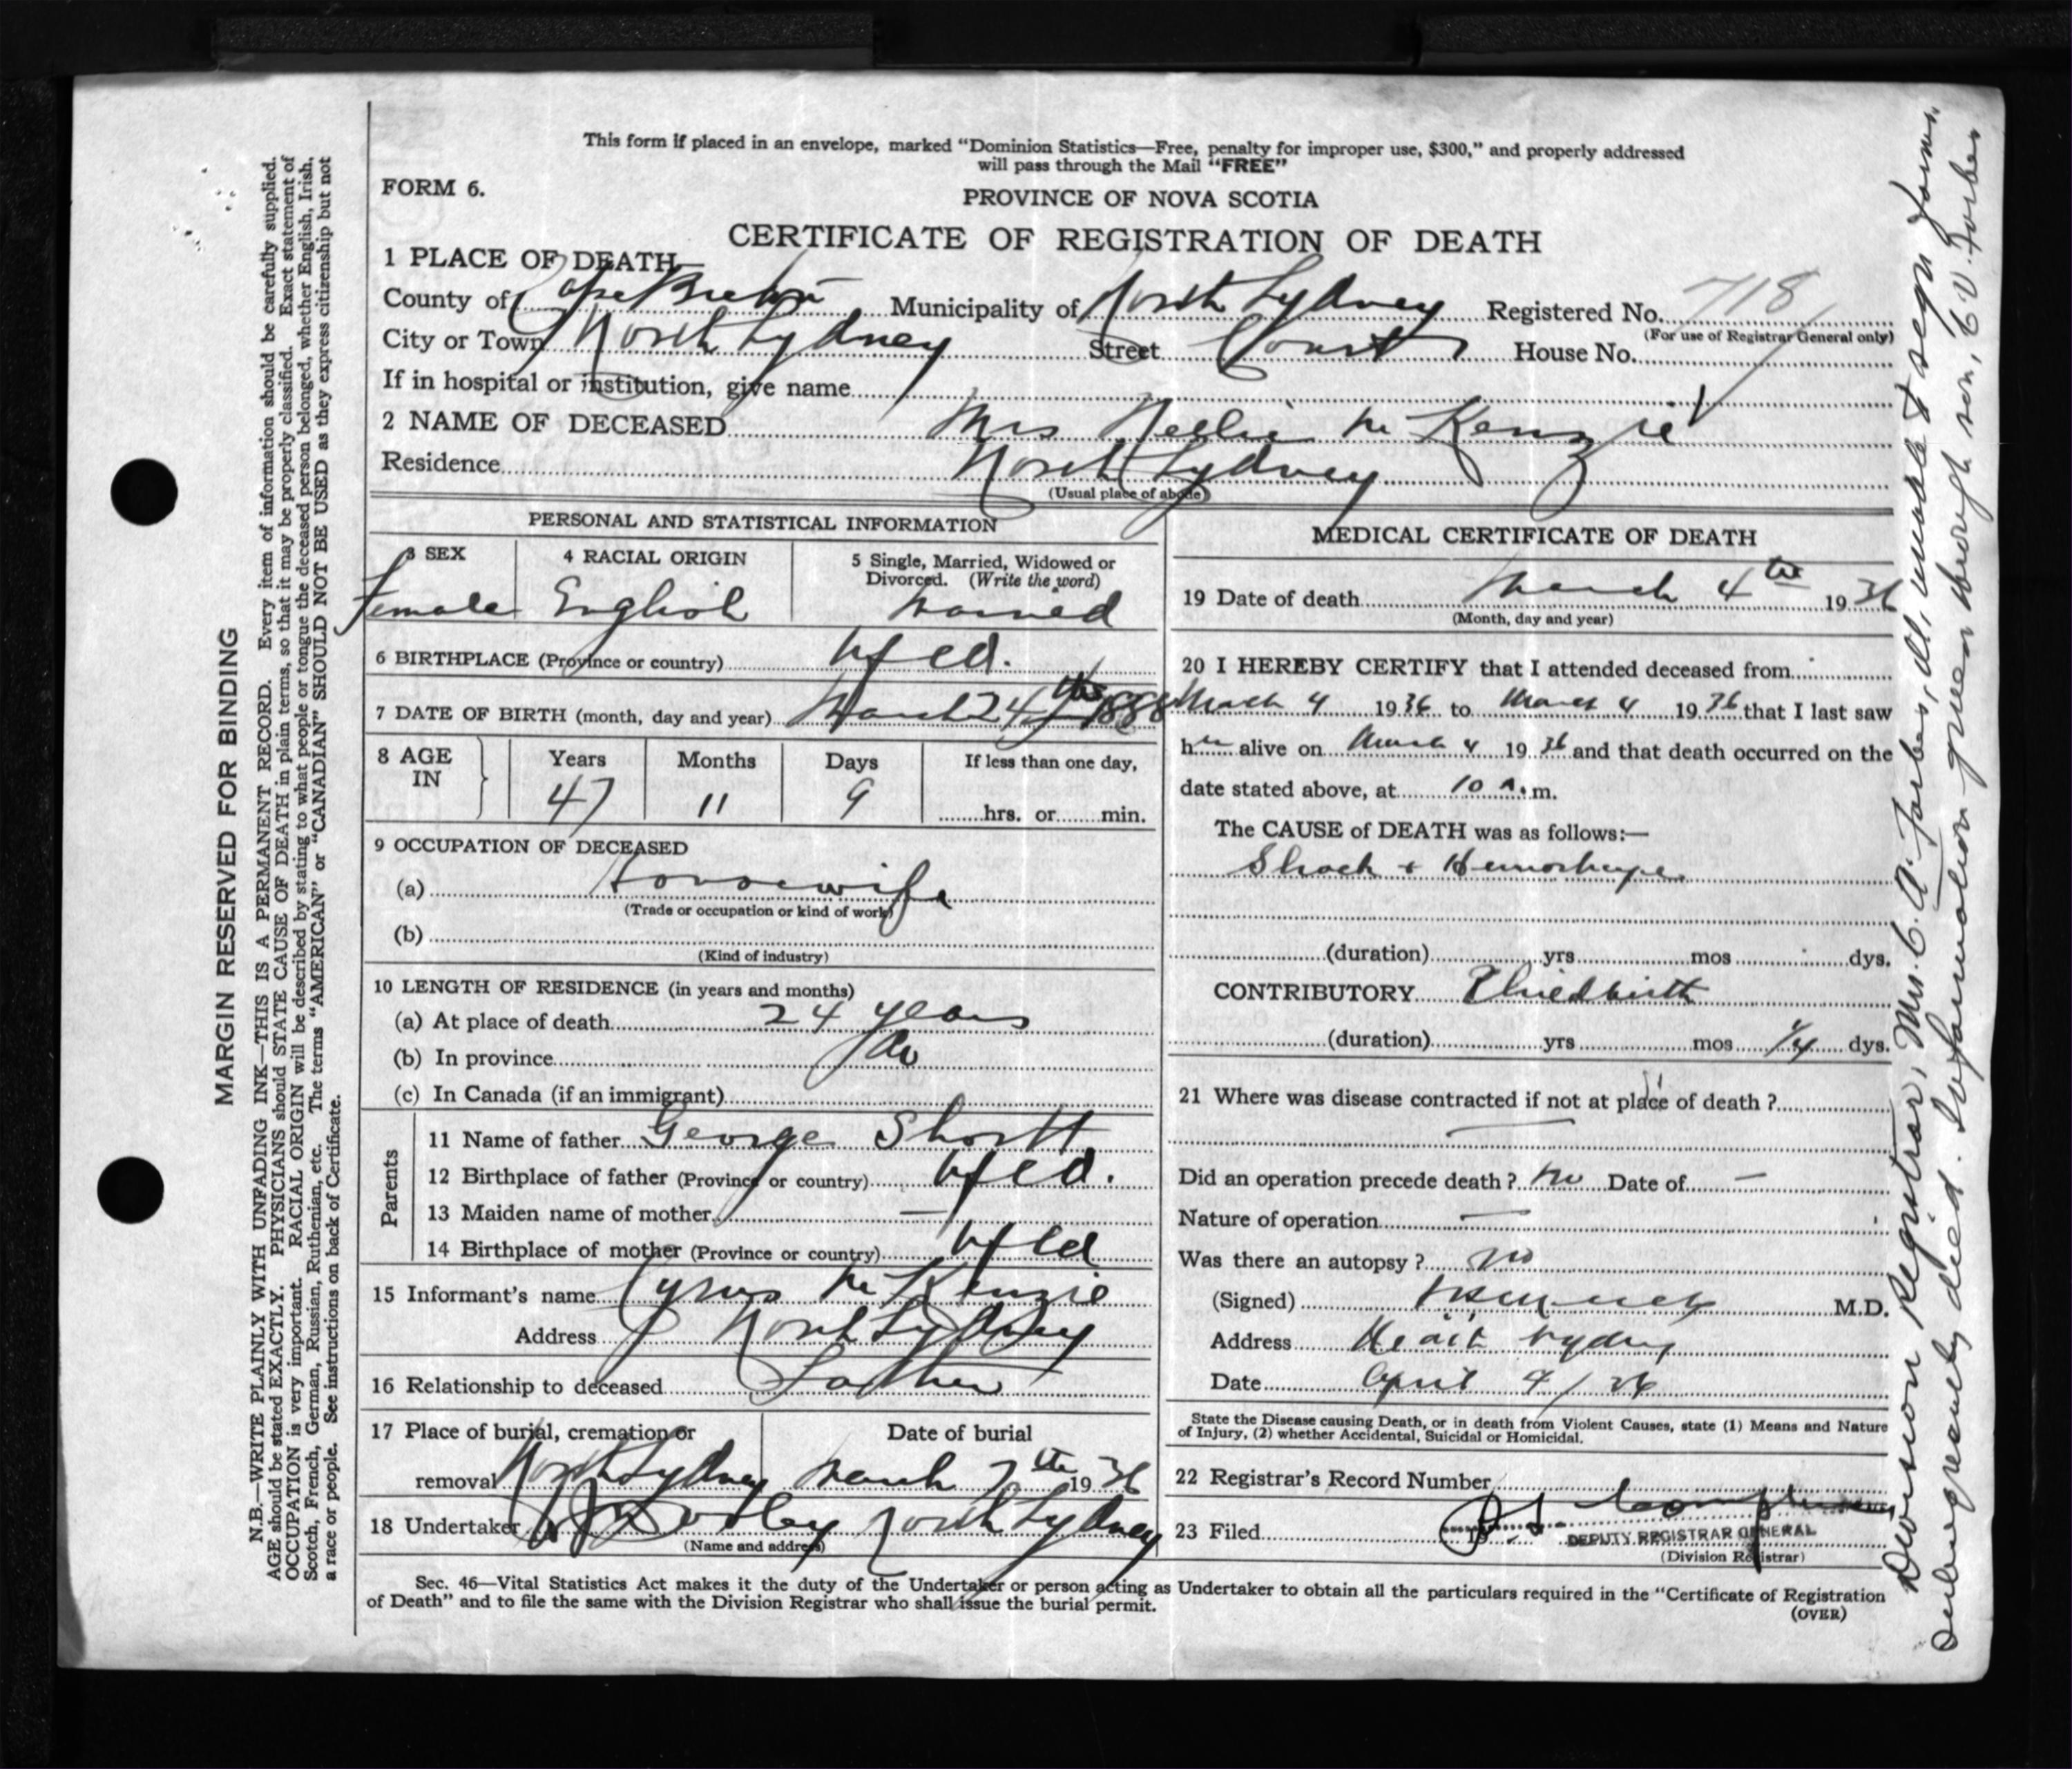 This form if placed in an envelope, marked "Dominion Statistics—Free, penalty for improper use, $300," and properly addressed
will pass through the Mail "FREE"
FORM 6.
PROVINCE OF NOVA SCOTIA
CERTIFICATE OF REGISTRATION OF DEATH
1 PLACE OF DEATH
County of Cape Breton Municipality of North Sydney Registered No. 718
(For use of Registrar General only)
City or Town North Sydney Street Court House No.
If in hospital or institution, give name
2 NAME OF DECEASED Mrs Nellie Mc Kenzie
Residence North Sydney
(Usual place of abode)
PERSONAL AND STATISTICAL INFORMATION
3 SEX 4 RACIAL ORIGIN 5 Single, Married, Widowed or
Divorced. (Write the word)
Female English Married
6 BIRTHPLACE (Province or country) Nfld.
7 DATE OF BIRTH (month, day and year) March 24th 1888
8 AGE IN Years Months Days If less than one day,
47 11 9 hrs. or min.
9 OCCUPATION OF DECEASED
(a) Housewife
(Trade or occupation or kind of work)
(b)
(Kind of industry)
10 LENGTH OF RESIDENCE (in years and months)
(a) At place of death 24 years
(b) In province do
(c) In Canada (if an immigrant)
Parents
11 Name of father George Shortt
12 Birthplace of father (Province or country) Nfld.
13 Maiden name of mother —
14 Birthplace of mother (Province or country) Nfld
15 Informant's name Cyrus Mc Kenzie
Address North Sydney
16 Relationship to deceased Father
17 Place of burial, cremation or Date of burial
removal North Sydney March 7th 1936
18 Undertaker Dooley North Sydney
(Name and address)
MEDICAL CERTIFICATE OF DEATH
19 Date of death March 4th 1936
(Month, day and year)
20 I HEREBY CERTIFY that I attended deceased from
March 4 1936 to March 4 1936 that I last saw
her alive on March 4 1936 and that death occurred on the
date stated above, at 10 A.m.
The CAUSE of DEATH was as follows:—
Shock + Hemorhage
(duration) yrs mos dys.
CONTRIBUTORY Childbirth
(duration) yrs mos 1/4 dys.
21 Where was disease contracted if not at place of death ?
—
Did an operation precede death ? no Date of —
Nature of operation —
Was there an autopsy ? no
(Signed) M.D.
Address North Sydney
Date April 4/36
State the Disease causing Death, or in death from Violent Causes, state (1) Means and Nature
of Injury, (2) whether Accidental, Suicidal or Homicidal.
22 Registrar's Record Number
23 Filed
DEPUTY REGISTRAR GENERAL
(Division Registrar)
Sec. 46—Vital Statistics Act makes it the duty of the Undertaker or person acting as Undertaker to obtain all the particulars required in the "Certificate of Registration
of Death" and to file the same with the Division Registrar who shall issue the burial permit.
(OVER)
MARGIN RESERVED FOR BINDING
N.B.—WRITE PLAINLY WITH UNFADING INK—THIS IS A PERMANENT RECORD. Every item of information should be carefully supplied.
AGE should be stated EXACTLY. PHYSICIANS should STATE CAUSE OF DEATH in plain terms, so that it may be properly classified. Exact statement of
OCCUPATION is very important. RACIAL ORIGIN will be described by stating to what people or tongue the deceased person belonged, whether English, Irish,
Scotch, French, German, Russian, Ruthenian, etc. The terms "AMERICAN" or "CANADIAN" SHOULD NOT BE USED as they express citizenship but not
a race or people. See instructions on back of Certificate.
Division Registrar, Mr. C. A. Forbes, ill, unable to sign forms.
Subsequently died. Information given through son, C. V. Forbes